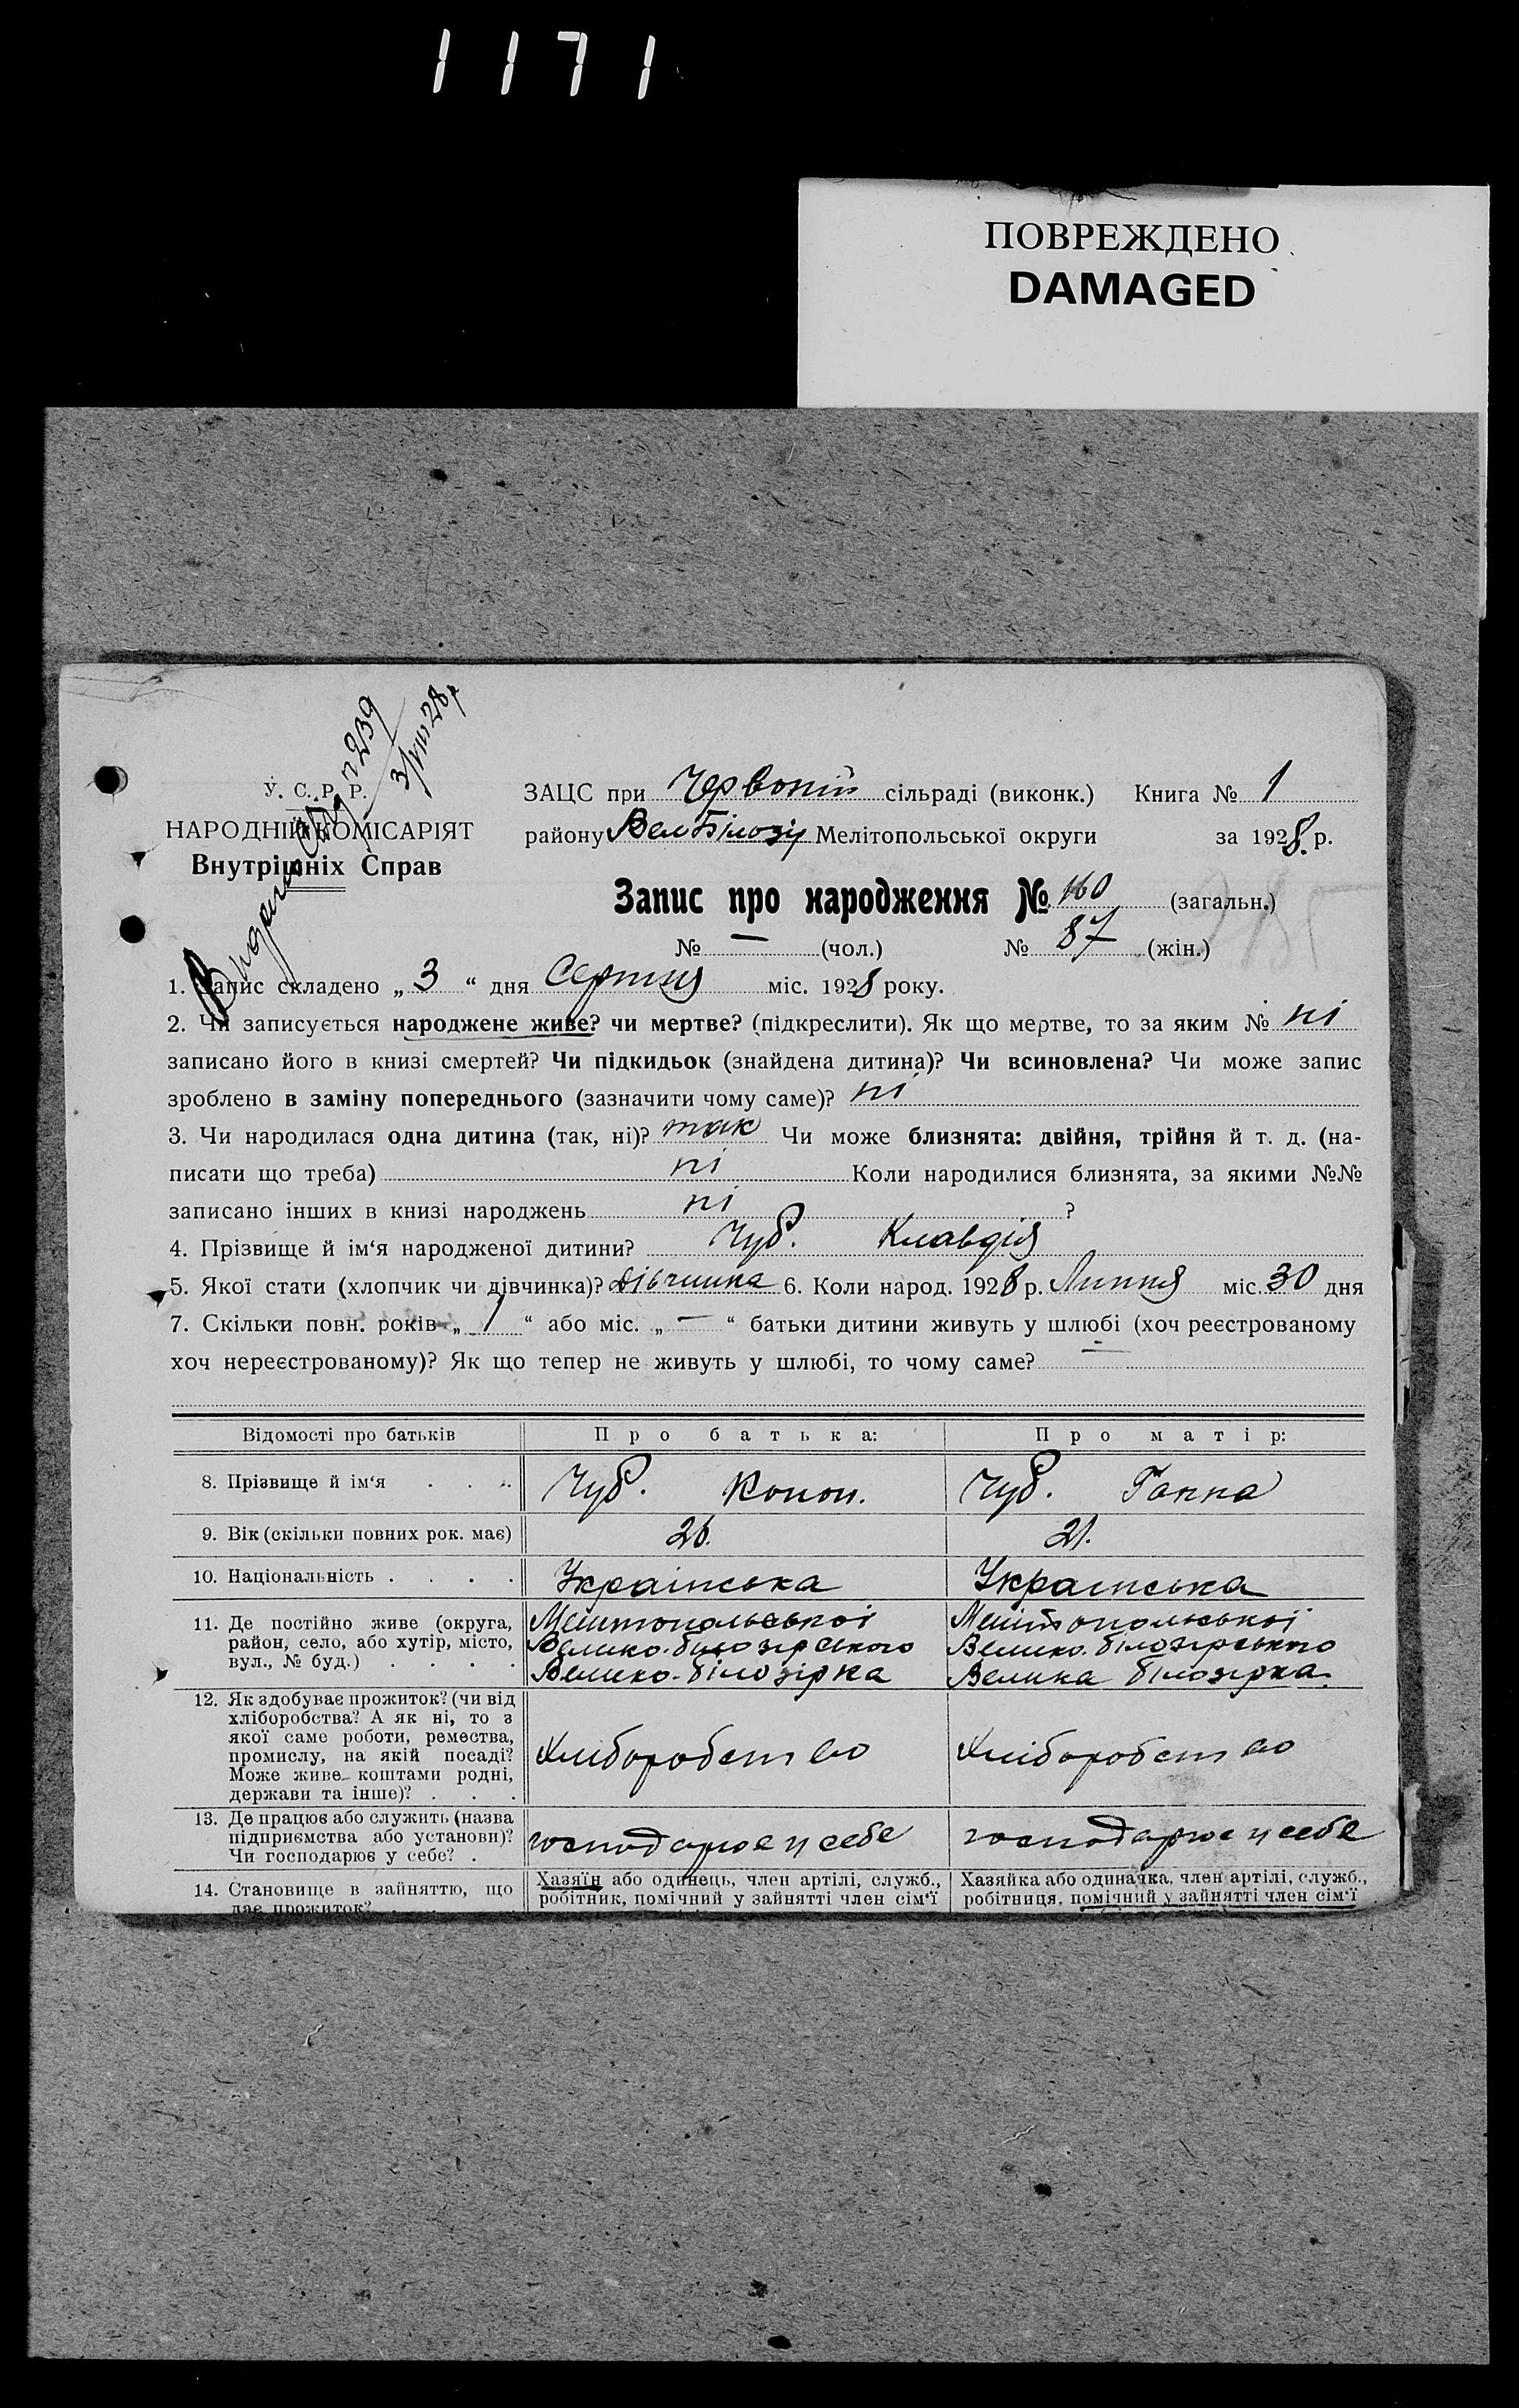 1171
ПОВРЕЖДЕНО
DAMAGED
Видано n 239
3/VIII 28 р
У. С. Р. Р.
НАРОДНІЙ КОМІСАРІЯТ
Внутрішніх Справ
ЗАЦС при Червоній сільраді (виконк.) Книга № 1
району Вел Білозір Мелітопольської округи за 1928 р.
Запис про народження № 160 (загальн.)
№ — (чол.) № 87 (жін.)
1. Запис складено „ 3 “ дня Серпня міс. 1928 року.
2. Чи записується народжене живе? чи мертве? (підкреслити). Як що мертве, то за яким № ні
записано його в книзі смертей? Чи підкидьок (знайдена дитина)? Чи всиновлена? Чи може запис
зроблено в заміну попереднього (зазначити чому саме)? ні
3. Чи народилася одна дитина (так, ні)? так Чи може близнята: двійня, трійня й т. д. (на-
писати що треба) ні Коли народилися близнята, за якими №№
записано інших в книзі народжень ні ?
4. Прізвище й ім‘я народженої дитини? Чуб. Клавдія
5. Якої стати (хлопчик чи дівчинка)? дівчинка 6. Коли народ. 1928 р. Липня міс. 30 дня
7. Скільки повн. років „ 1 “ або міс. „ — “ батьки дитини живуть у шлюбі (хоч реєстрованому
хоч нереєстрованому)? Як що тепер не живуть у шлюбі, то чому саме? —
Відомості про батьків Про батька: Про матір:
8. Прізвище й ім‘я Чуб. Конон. Чуб. Ганна
9. Вік (скільки повних рок. має) 26. 21.
10. Національність Українська Українська
11. Де постійно живе (округа, Мелітопольської Мелітопольської
район, село, або хутір, місто, Велико-білозірського Велико-білозірського
вул., № буд.) Велико-білозірка Велика білозірка.
12. Як здобуває прожиток? (чи від
хліборобства? А як ні, то з
якої саме роботи, ремества,
промислу, на якій посаді? Хліборобство Хліборобство
Може живе коштами родні,
держави та інше)?
13. Де працює або служить (назва
підприємства або установи)? господарює у себе господарює у себе
Чи господарює у себе?
14. Становище в зайняттю, що Хазяїн або одинець, член артілі, служб., Хазяйка або одиначка, член артілі, служб.,
дає прожиток? робітник, помічний у зайнятті член сім‘ї робітниця, помічний у зайнятті член сім‘ї